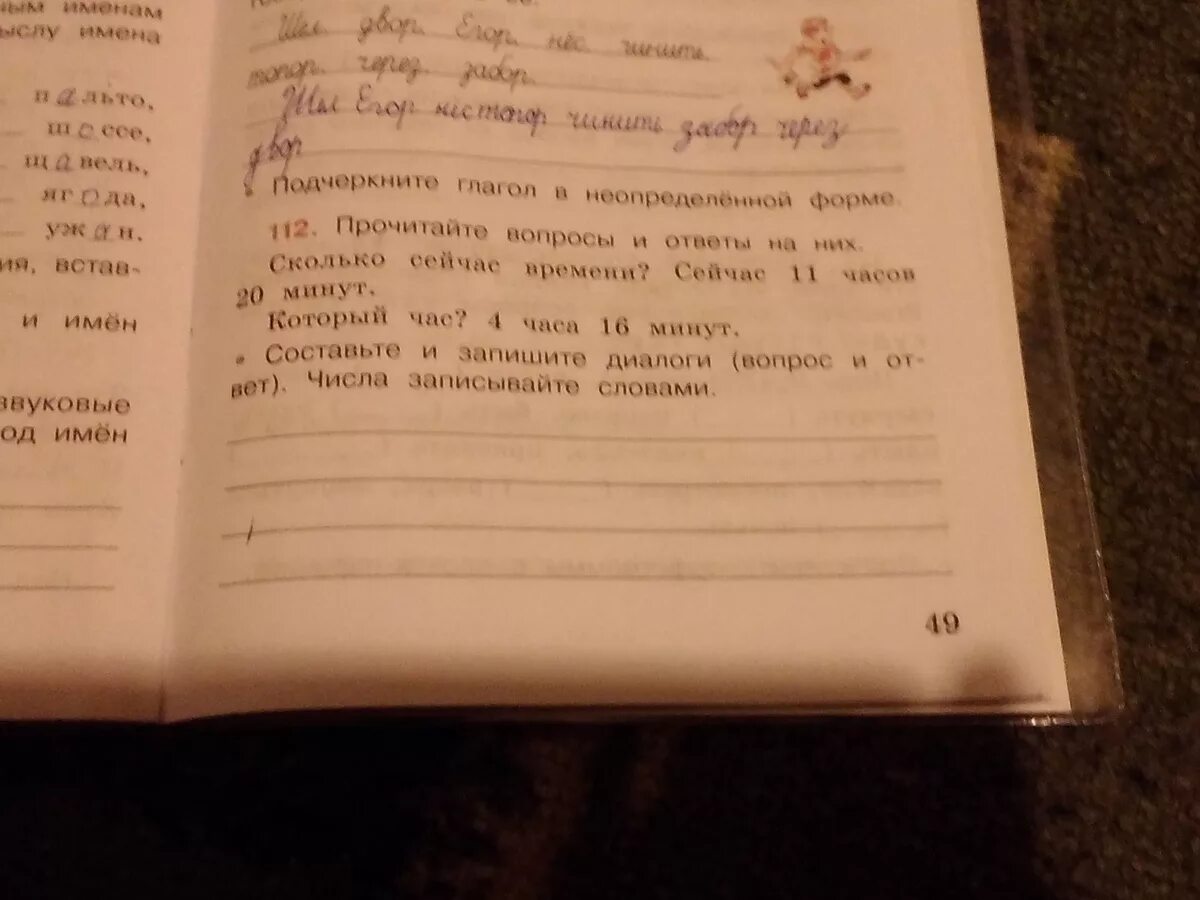 ным именам
ыслу имена
пальто,
шоссе,
щавель,
ягода,
ужин.
ия, встав-
и имён
звуковые
од имён
Шёл двор Егор нёс чинить
топор через забор.
Шёл Егор нёс топор чинить забор через
двор
• Подчеркните глагол в неопределённой форме.
112. Прочитайте вопросы и ответы на них.
Сколько сейчас времени? Сейчас 11 часов
20 минут.
Который час? 4 часа 16 минут.
• Составьте и запишите диалоги (вопрос и от-
вет). Числа записывайте словами.
49